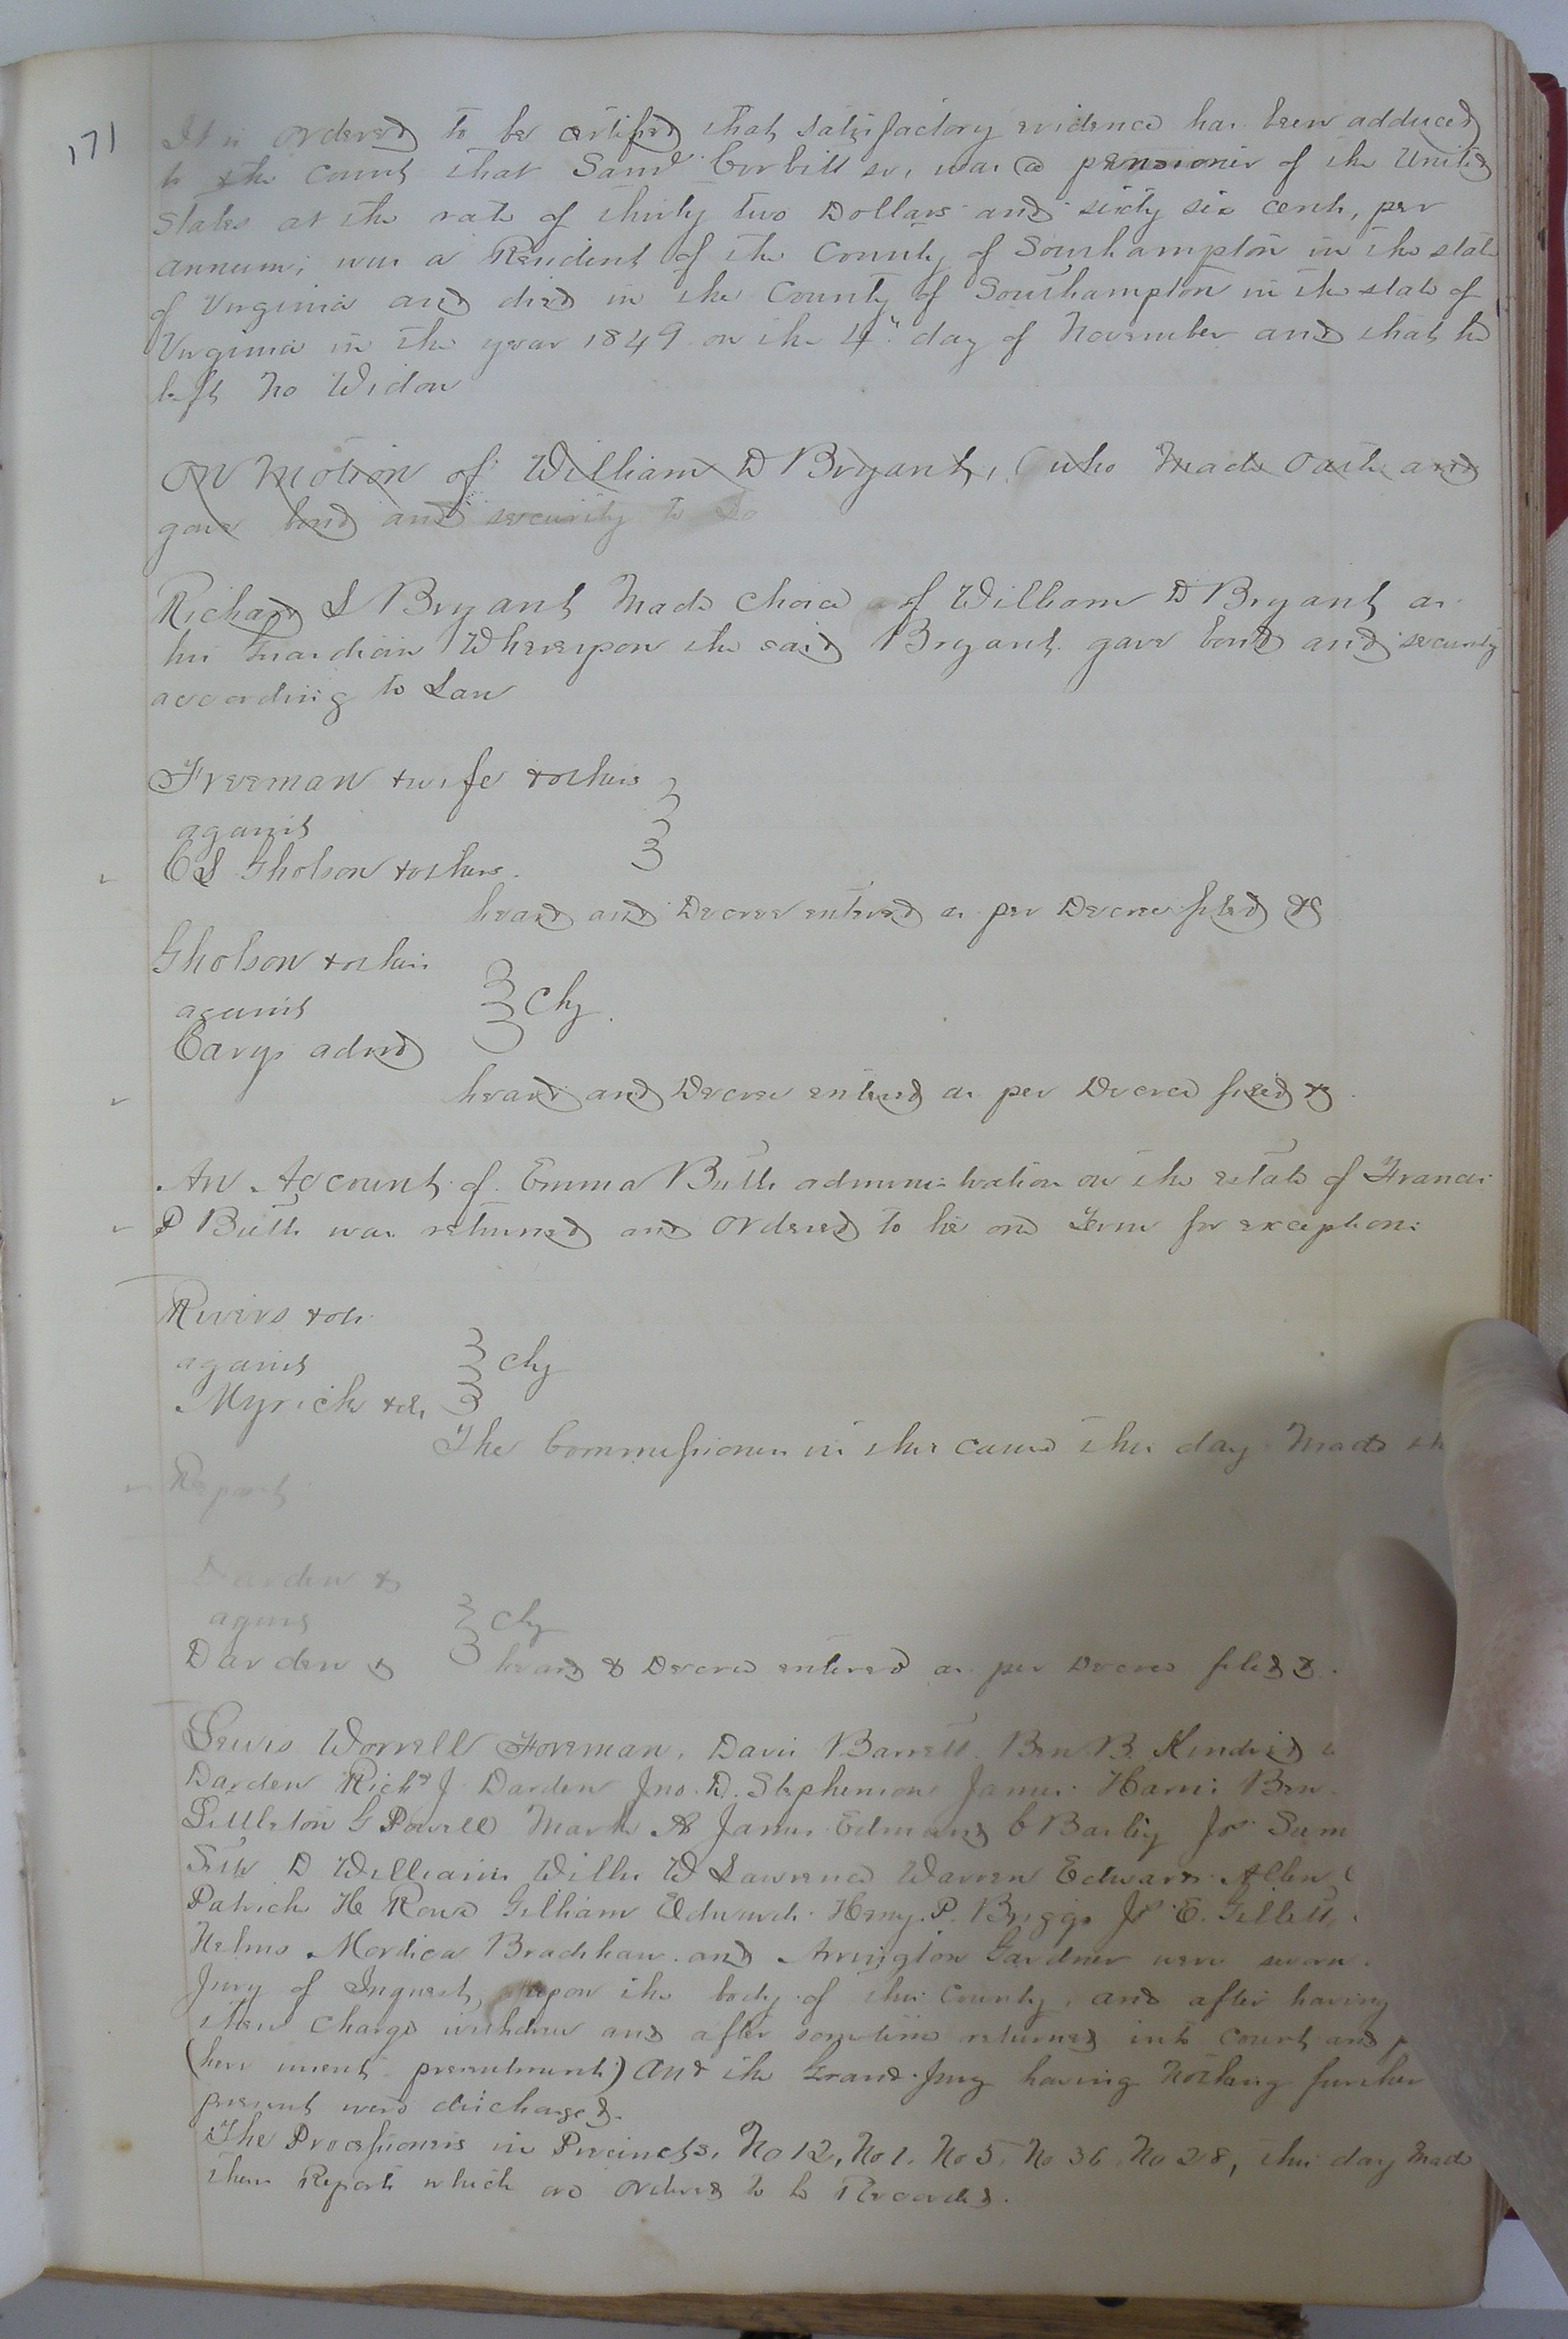 171
It is ordered to be certified that satisfactory evidence has been adduced
to the Court that Saml Corbitt sr, was a pensioner of the United
States at the rate of thirty two Dollars and sixty six cents, per
annum; was a Resident of the County of Southampton in the state
of Virginia and died in the County of Southampton in the state of
Virginia in the year 1849 on the 4th day of November and that he
left No Widow
On Motion of William D Bryant, (who Made Oath and
gave bond and security to
Richard L Bryant Made Choice of William D Bryant as
his Guardian Whereupon the said Bryant gave bond and security
according to Law
Freeman & wife & others
against
C S Gholson & others.
heard and Decree entered as per Decree filed &c
Gholson & others
against
Chy.
Carys admr
heard and Decree entered as per Decree filed &c.
An Account of Emma Butts administration on the estate of Francis
P Butts was returned and Ordered to lie one Term for exceptions
Rivers & ots
against
Chy
Myrick & ots
The Commissioners in this cause this day Made
Report
Darden &
against
Chy
Darden & heard & Decree entered as per Decree filed &.
Lewis Worrell Foreman, Davis Barrett Ben B. Kindred
Darden Richd J Darden Jno. D. Stephenson James Harris Ben
Littleton G Powell Mark A James Edmund C Barley Jos Sam
Seth D Williams Willis W Lawrence Warren Edwards Allen
Patrick H Rowe Gilliam Edwards Henry P. Briggs Js E. Gillett,
Helms Mordica Bradshaw and Arrington Gardner were sworn
Jury of Inquest, upon the body of this County, and after having
their charge withdrew and after sometime returned into Court and
(here insert presentments) And the Grand Jury having Nothing further
present were discharged.
The Processioners in Precincts, No 12, No 1, No 5, No 36, No 28, this day Made
their Reports which are ordered to be Recorded.